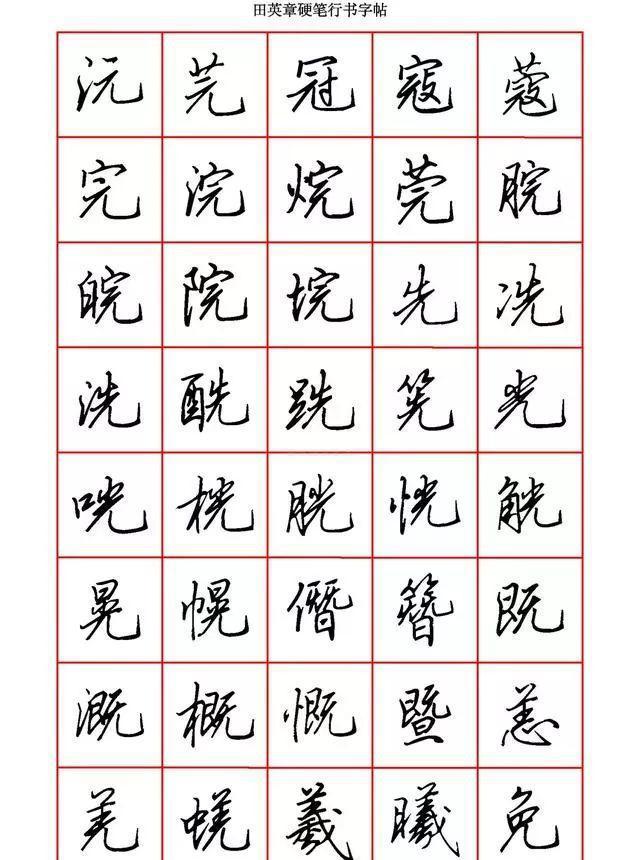 田英章硬笔行书字帖
沅 芫 冠 寇 蔻
完 浣 烷 莞 脘
皖 院 垸 先 冼
洗 酰 跣 筅 光
咣 桄 胱 恍 觥
晃 幌 僭 簪 既
溉 概 慨 暨 恙
羌 蜣 羲 曦 免